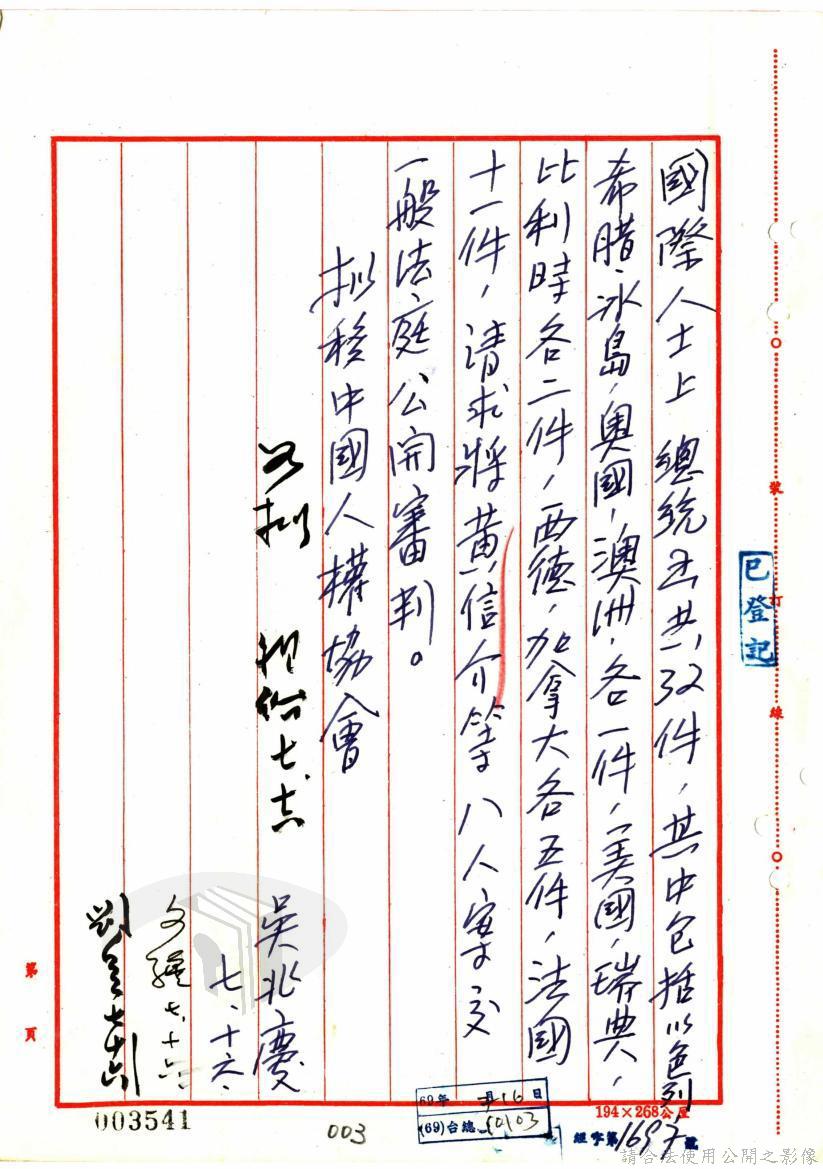 國際人士上 總統函共32件，其中包括以色列，
希腊，冰島，奧國，澳洲，各一件，美國，瑞典，
比利時各二件，西德，加拿大各五件，法國
十一件，請求將黃信介等八人案交
一般法庭公開審判。
擬移中國人權協會
如擬
七.
吳兆慶
七、十六、
七.十六
劉
七十六
已登記
裝
訂
線
第
頁
194×268公厘
69年 月16日
(69)台總
經字第1697號
003
003541
請合法使用公開之影像